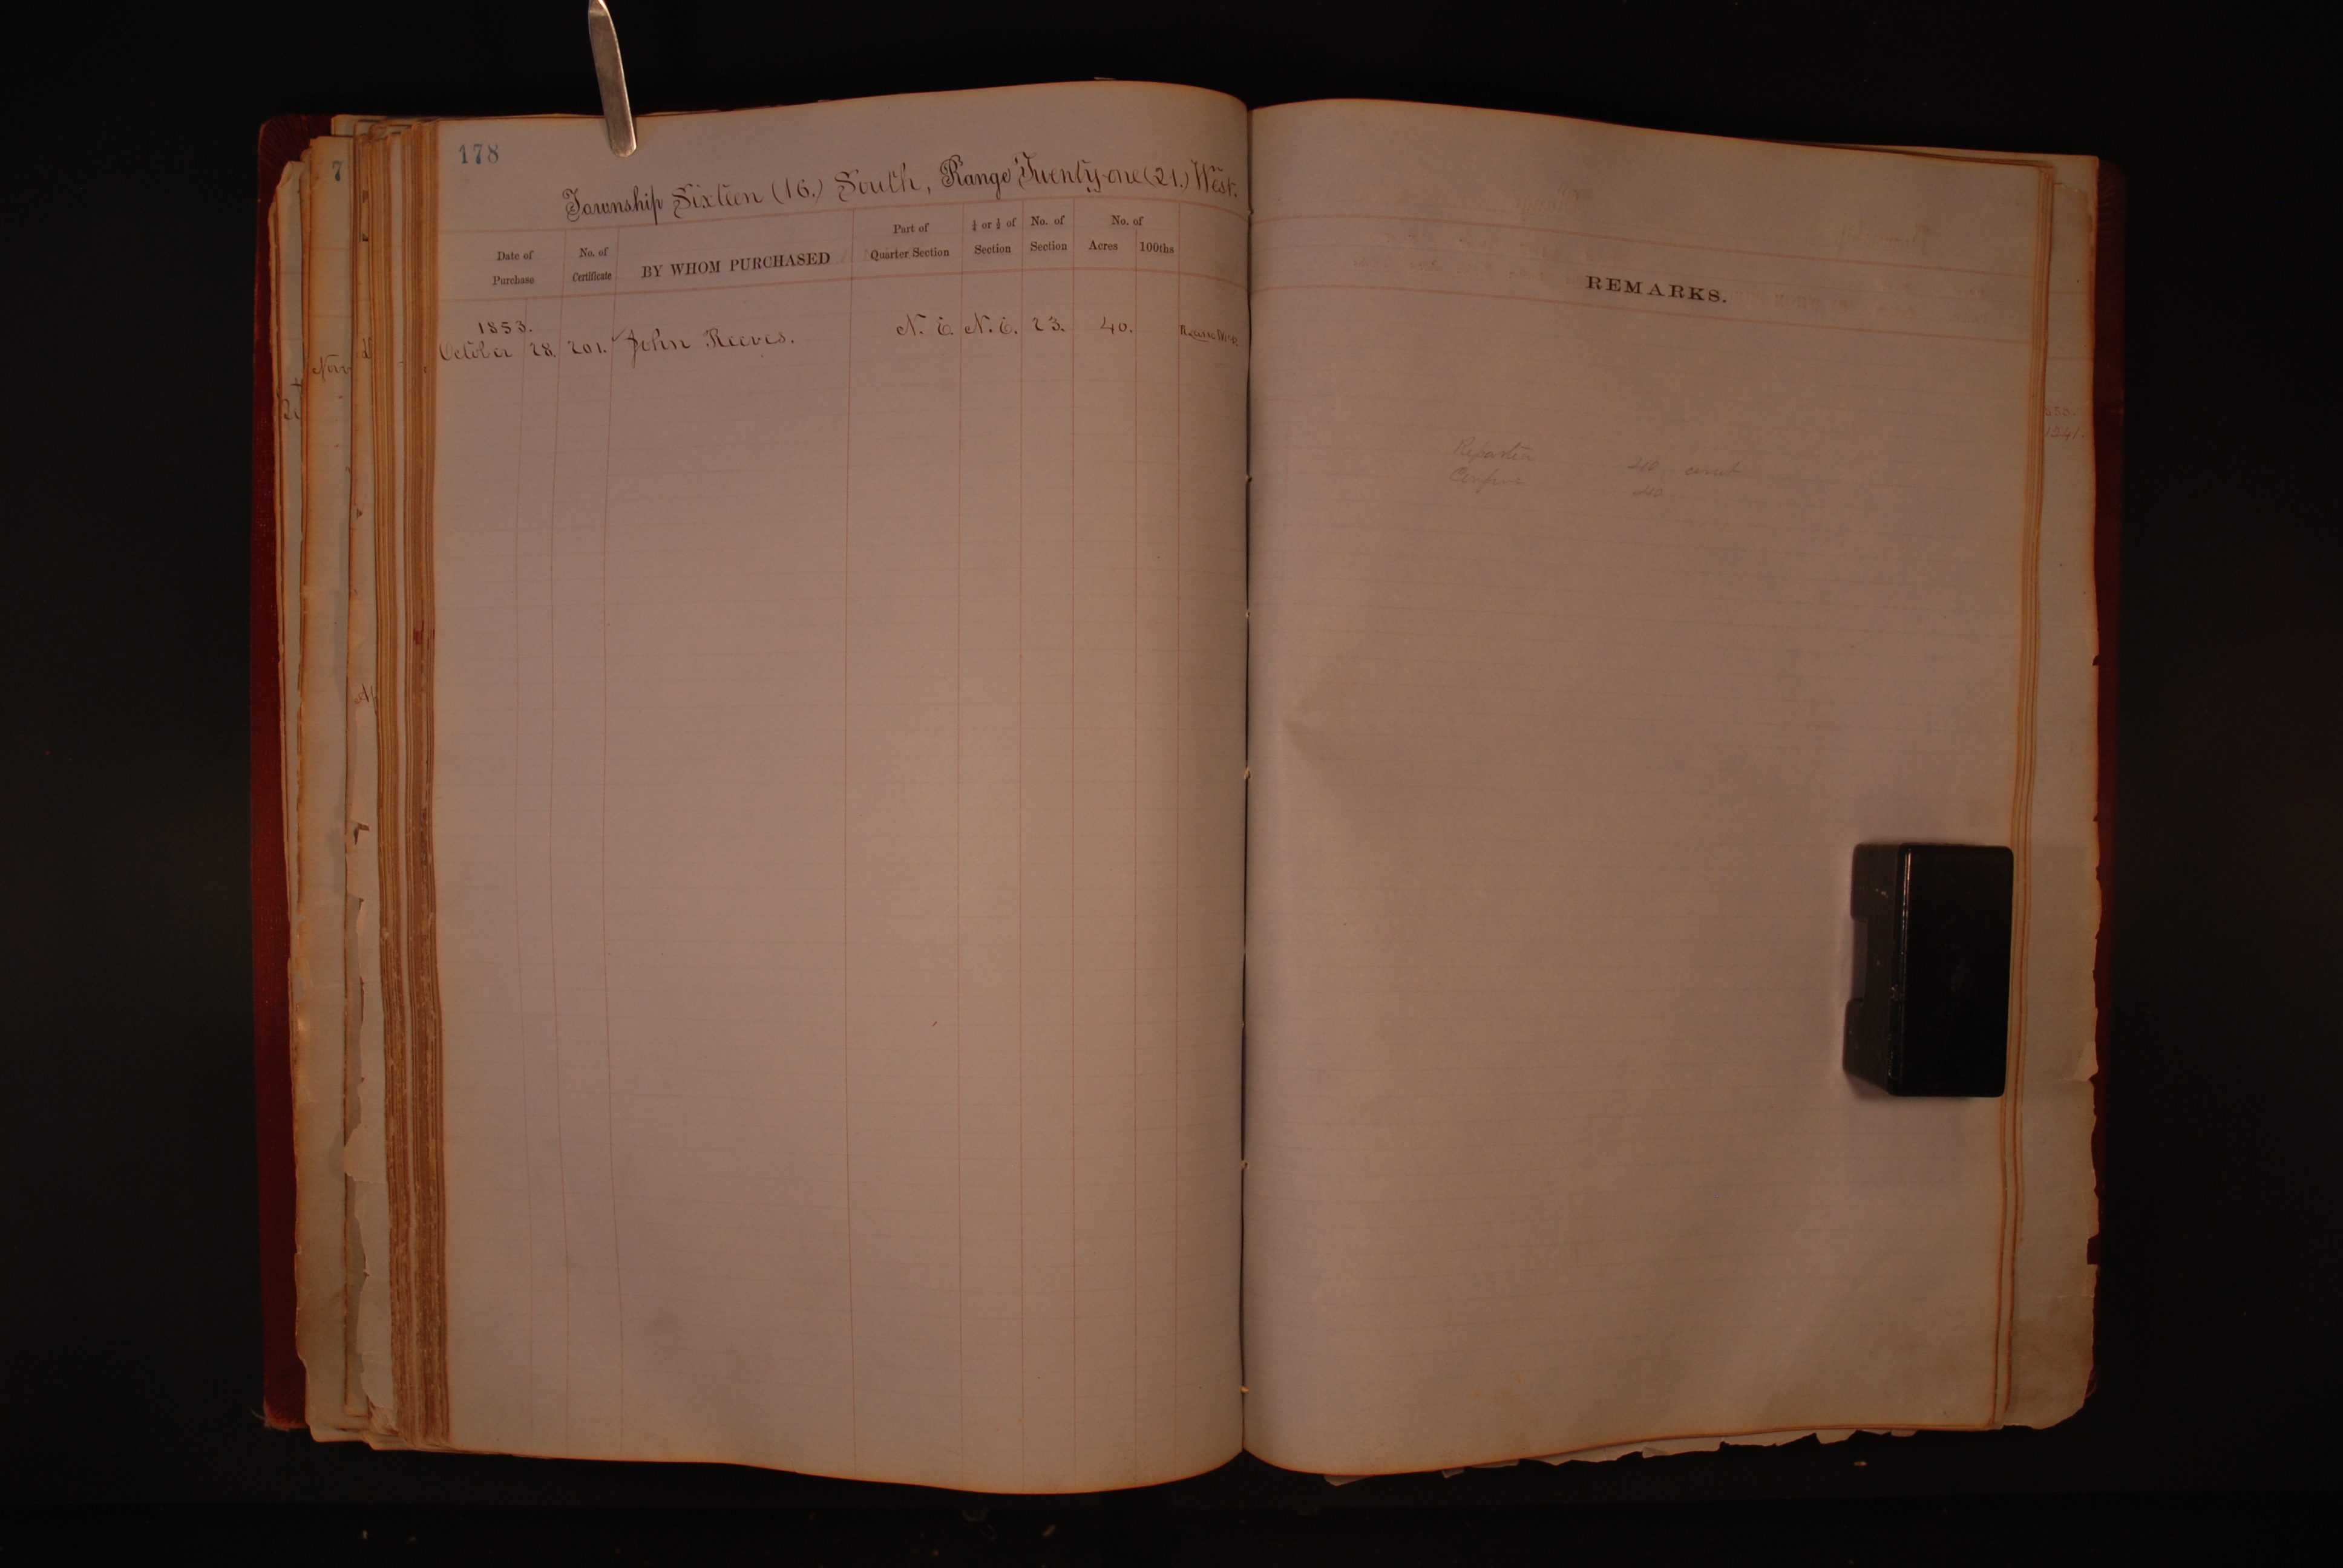 178
7
Township Sixteen (16.) South, Range Twenty-one (21.) West.
Date of Purchase
No. of Certificate
BY WHOM PURCHASED
Part of Quarter Section
¼ or ½ of Section
No. of Section
No. of Acres 100ths
REMARKS.
1853.
October 28. 201. John Reeves. N. E. N. E. 23. 40.
Nov
40